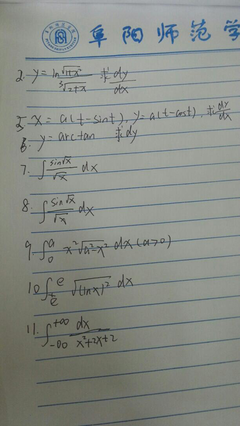 阜阳师范学
2. y = ln√(1+x²) / ³√(2+x) 求 dy/dx
5. x = a(t-sint), y = a(t-cost), 求 dy/dx
6. y = arctan 求 dy
7. ∫ sin√x / √x dx
8. ∫ sin√x / √x dx
9. ∫₀ᵃ x²√(a²-x²) dx (a>0)
10. ∫ e √(lnx)² dx
11. ∫₋∞⁺∞ dx / x²+2x+2